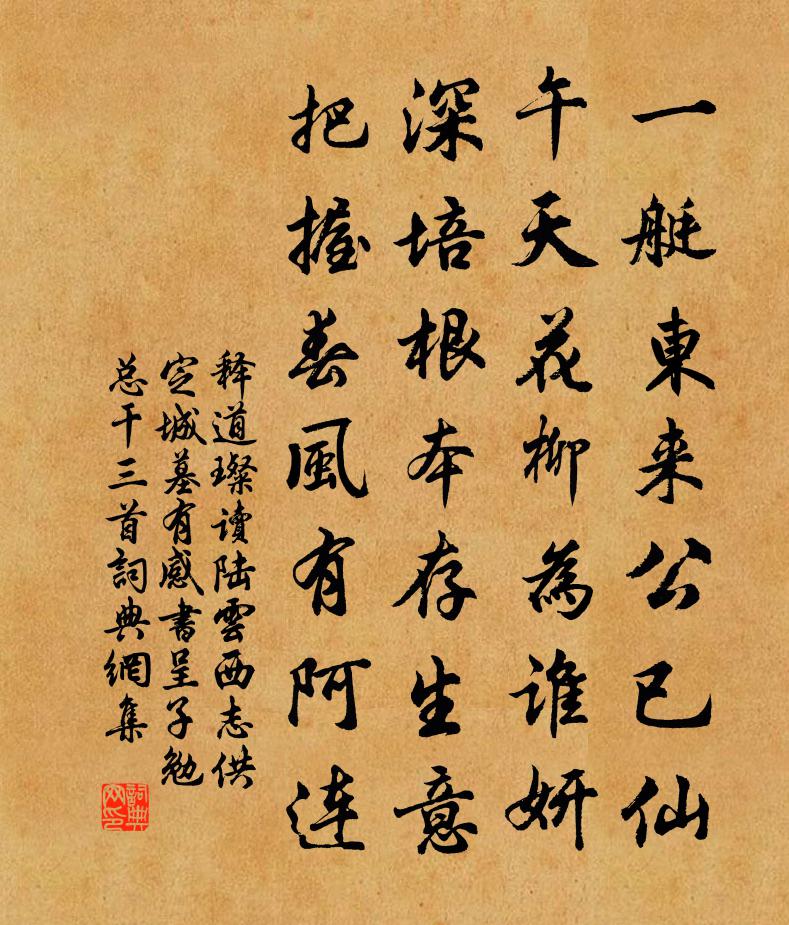 一艇東来公已仙
午天花柳為谁妍
深培根本存生意
把握春風有阿连
释道璨读陆雲西志供
定城墓有感書呈子勉
总干三首詞典網集
詞典網印